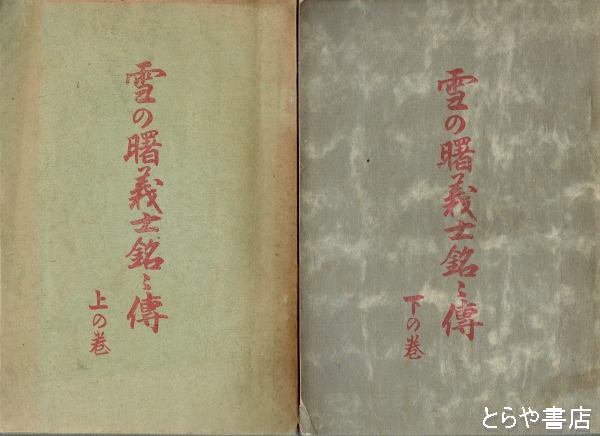 雪の曙義士銘〻傳
上の巻
雪の曙義士銘〻傳
下の巻
とらや書店